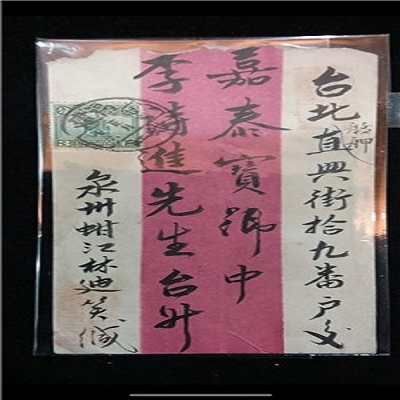 台北直興街拾九番戶交
艋舺
嘉泰寶號中
李清進先生台升
泉州蚶江林迪笑緘